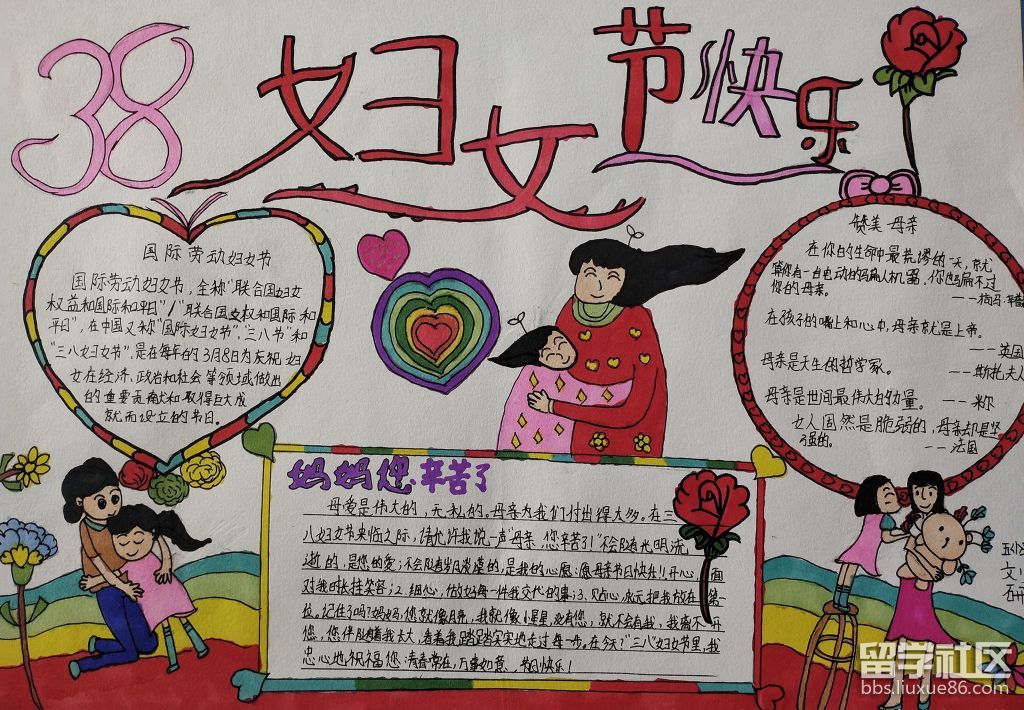 38妇女节快乐
国际劳动妇女节
国际劳动妇女节，全称"联合国妇女
权益和国际和平日"/"联合国女权和国际和
平日"，在中国又称"国际妇女节"、"三八节"和
"三八妇女节"，是在每年的3月8日为庆祝妇
女在经济、政治和社会等领域做出
的重要贡献和取得巨大成
就而设立的节日。
赞美母亲
在你的生命中最荒谬的一天，就
算你有一台电动的码确认机器，你也骗不过
你的母亲。
在孩子的嘴上和心中，母亲就是上帝。
——英国
母亲是天生的哲学家。
——斯托夫人
母亲是世间最伟大的力量。 ——米尔
女人固然是脆弱的，母亲却是坚
强的。
——法国
妈妈您辛苦了
母爱是伟大的，无私的。母亲为我们付出得太多。在三
八妇女节来临之际，请允许我说一声"母亲，您辛苦了！"不会随光明流
逝的，是您的爱；不会随岁月淡漠的，是我的心愿：愿母亲节日快乐！1、开心，面
对我时长挂笑容；2、细心，做好每一件我交代的事；3、贴心，永远把我放在第一
位。记住了吗？妈妈，您就像月亮，我就像小星星，没有您，就不会有我，我离不开
您，您伴随着我长大，看着我踏踏实实地走过每一步。在今天"三八"妇女节里，我
忠心地祝福您：青春常在，万事如意，节日快乐！
留学社区
bbs.liuxue86.com